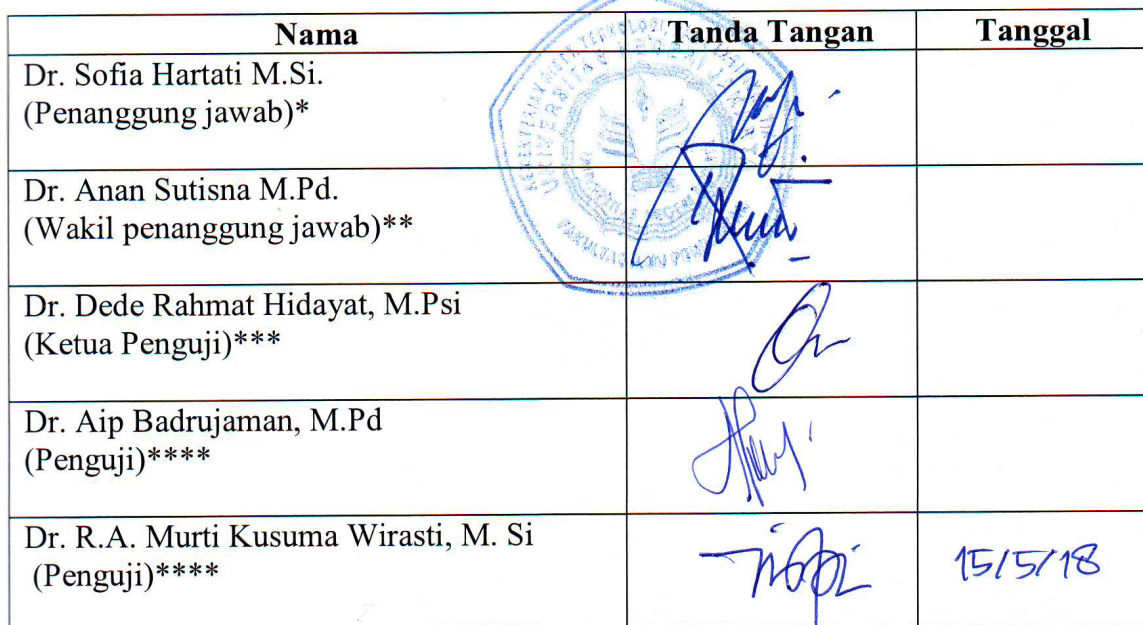 Nama Tanda Tangan Tanggal
Dr. Sofia Hartati M.Si.
(Penanggung jawab)*
Dr. Anan Sutisna M.Pd.
(Wakil penanggung jawab)**
Dr. Dede Rahmat Hidayat, M.Psi
(Ketua Penguji)***
Dr. Aip Badrujaman, M.Pd
(Penguji)****
Dr. R.A. Murti Kusuma Wirasti, M. Si
(Penguji)**** 15/5/18